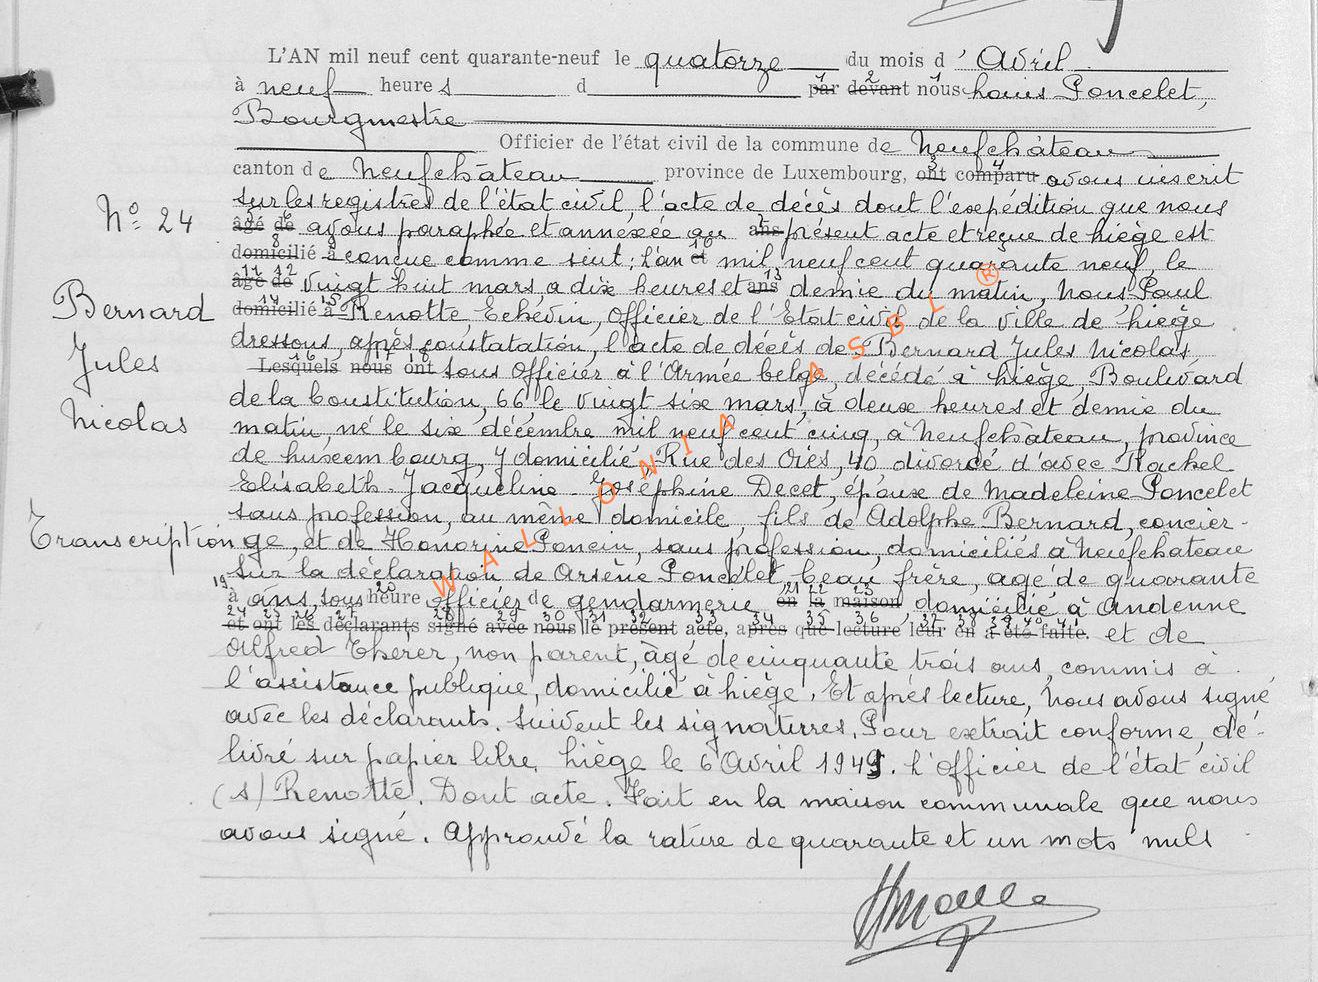 L'AN mil neuf cent quarante-neuf le quatorze du mois d' Avril
à neuf heures d par devant nous Louis Poncelet,
Bourgmestre
Officier de l'état civil de la commune de Neufchâteau
canton de Neufchâteau province de Luxembourg, ont comparu avons inscrit
sur les registres de l'état civil, l'acte de décès dont l'expédition que nous
N° 24
âgé de avons paraphée et annexée au ans présent acte et reçue de Liège est
domicilié à conçue comme suit; L'an et mil neuf cent quarante neuf, le
âgé de vingt huit mars, à dix heures et ans demie du matin, Nous Paul
Bernard Jules Nicolas
domicilié à Renotte Echévin, Officier de l'Etat civil de la ville de Liège
dressons, après constatation, l'acte de décès de Bernard Jules Nicolas,
Lesquels nous ont sous Officier à l'Armée belge, décédé à Liège, Boulevard
de la Constitution, 66 le vingt six mars, à deux heures et demie du
matin, né le six décembre mil neuf cent cinq, à Neufchâteau, province
de Luxembourg, y domicilié, Rue des Oiés, 40 divorcé d'avec Rachel
Elisabeth Jacqueline Joséphine Decet, époux de Madeleine Poncelet
sans profession, au même domicile, fils de Adolphe Bernard, concier-
Transcription
ge, et de Honorine Poncin, sans profession, domiciliés à Neufchateau
Sur la déclaration de Arsène Poncelet, beau frère, agé de quarante
à ans, sous heure officier de gendarmerie en la maison domicilié à Andenne
et ont les déclarants signé avec nous le présent acte, après que lecture leur en a été faite. et de
Alfred Therer, non parent, âgé de cinquante trois ans, commis à
l'assistance publique, domicilié à Liège. Et après lecture, Nous avons signé
avec les déclarants. Suivent les signatures. Pour extrait conforme, dé-
livré sur papier libre. Liège le 6 Avril 1949. L'officier de l'état civil
(s) Renotte. Dont acte. Fait en la maison communale que nous
avons signé. Approuvé la rature de quarante et un mots nuls
WALLONIA ASBL ®